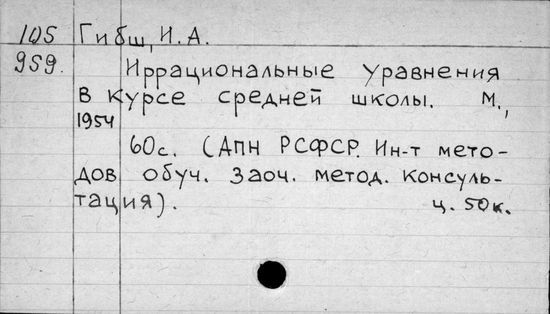 105 Гибш, И.А.
959. Иррациональные уравнения
в курсе средней школы. М.,
1954
60с. (АПН РСФСР. Ин-т мето-
дов обуч. Заоч. метод. консуль-
тация). ц. 50к.